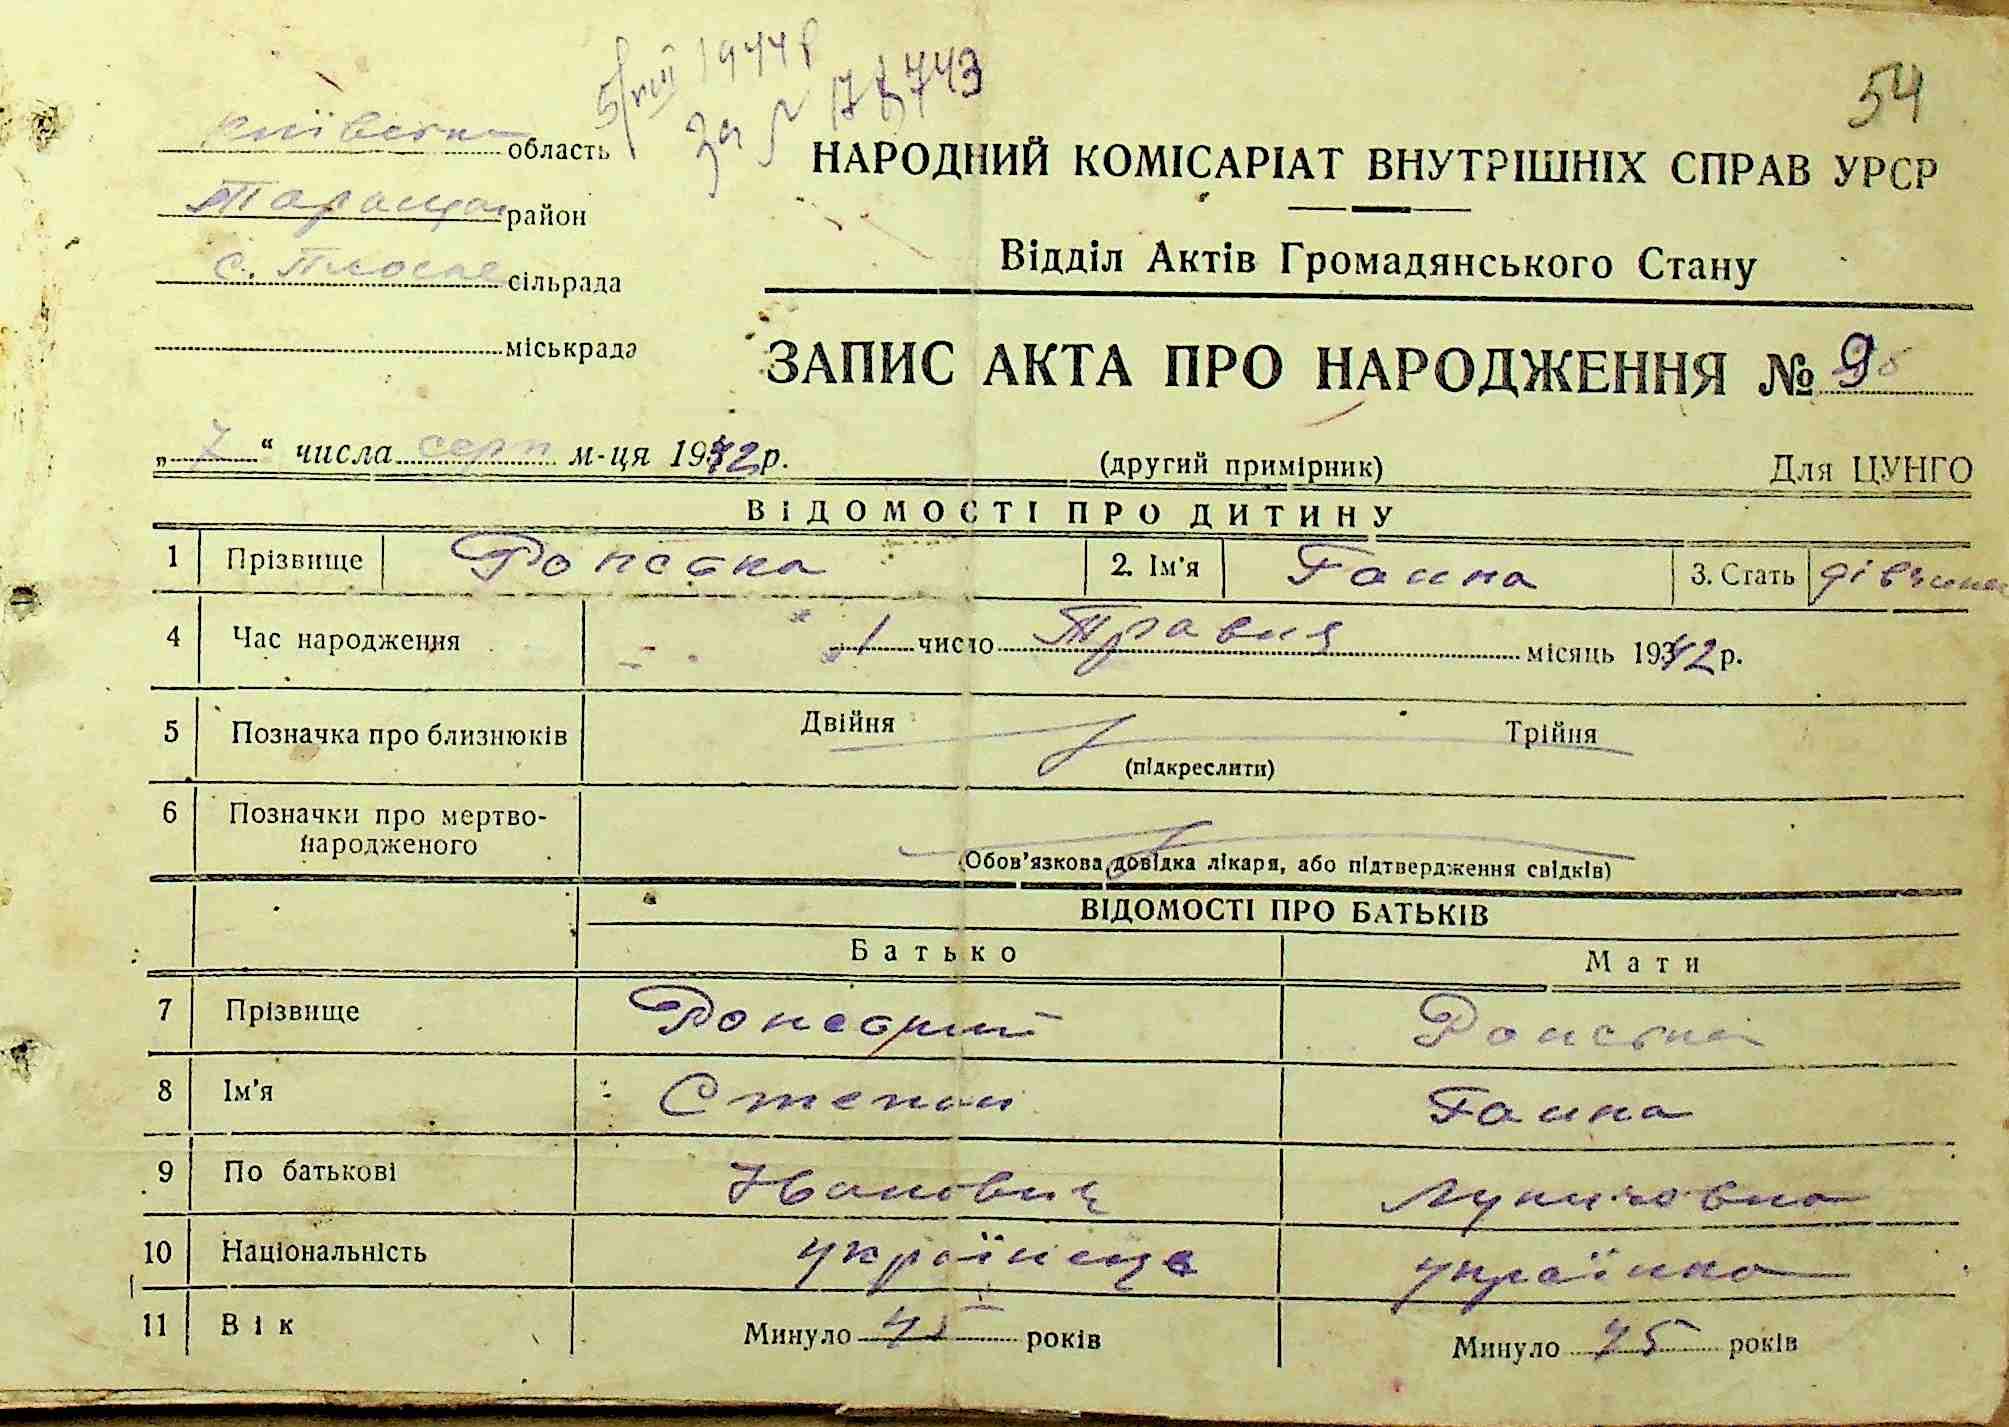 5/VIII 1944 р
За № 178743
54
Київська область
Таращан район
с. Плоске сільрада
міськрада
НАРОДНИЙ КОМІСАРІАТ ВНУТРІШНІХ СПРАВ УРСР
Відділ Актів Громадянського Стану
ЗАПИС АКТА ПРО НАРОДЖЕННЯ № 9
„ 7 “ числа серп м-ця 1942 р.
(другий примірник)
Для ЦУНГО
ВІДОМОСТІ ПРО ДИТИНУ
1 Прізвище 2. Ім'я Ганна 3. Стать дівчина
4 Час народження 1 число Травня місяць 1942 р.
5 Позначка про близнюків Двійня Трійня
(підкреслити)
6 Позначки про мертво-
народженого
(Обов'язкова довідка лікаря, або підтвердження свідків)
ВІДОМОСТІ ПРО БАТЬКІВ
Батько Мати
7 Прізвище
8 Ім'я Степан Ганна
9 По батькові Іванович
10 Національність українець українка
11 Вік Минуло 45 років Минуло 45 років